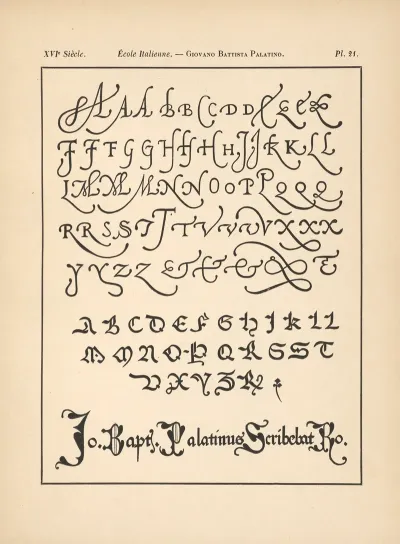 XVIᵉ Siècle. École Italienne. — Giovano Battista Palatino. Pl. 21.
A A A B B C C D D E E E E
F F T G G H H H H J J K K L L
L M M M N N O O P P Q Q Q
R R S S S T T T V V V V X X X
Y Y Z Z & & & & &
A B C D E F G H J K L L
M M N O P Q R S S T
V X Y Z R
Jo. Bapt. Palatinus Scribebat Ro.